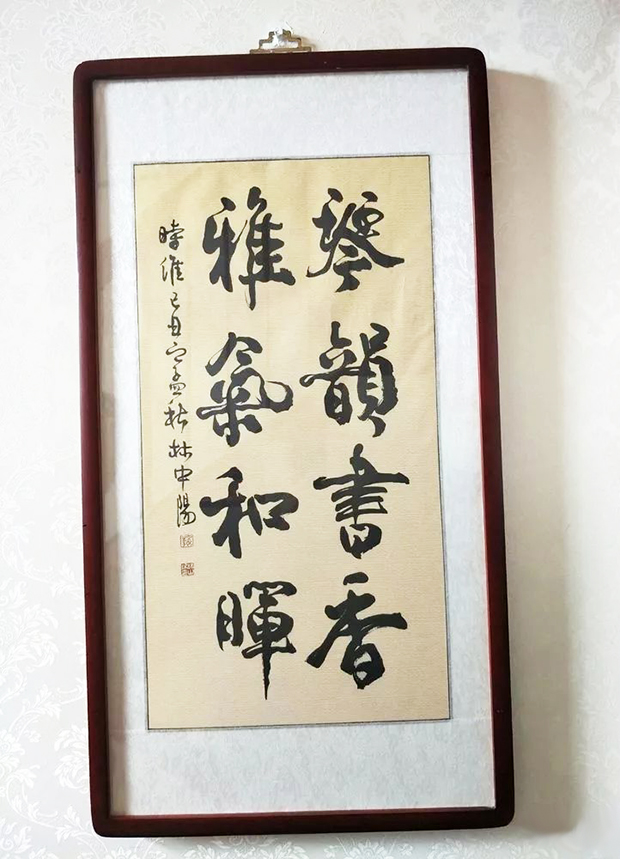 琴韻書香
雅氣和暉
時維己丑之孟秋林中陽